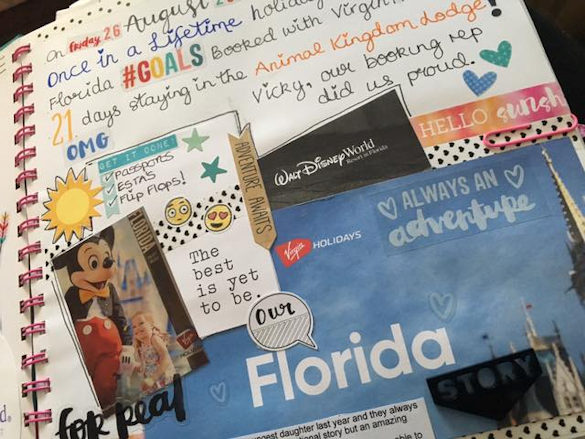 on Friday 26 August 20
Once in a Lifetime holiday
Florida #GOALS Booked with Virgin
21 days staying in the Animal Kingdom Lodge!
Vicky, our booking rep
did us proud.
OMG
GET IT DONE!
PASSPORTS
ESTAS
Flip Flops!
ADVENTURE AWAITS
WALT DISNEY World
Resort in Florida
HELLO sunsh
ALWAYS AN
adventure
Virgin HOLIDAYS
FLORIDA
Virgin
The
best
is yet
to be.
OUR
Florida
STORY
for real
ngest daughter last year and they always
tional story but an amazing
able to